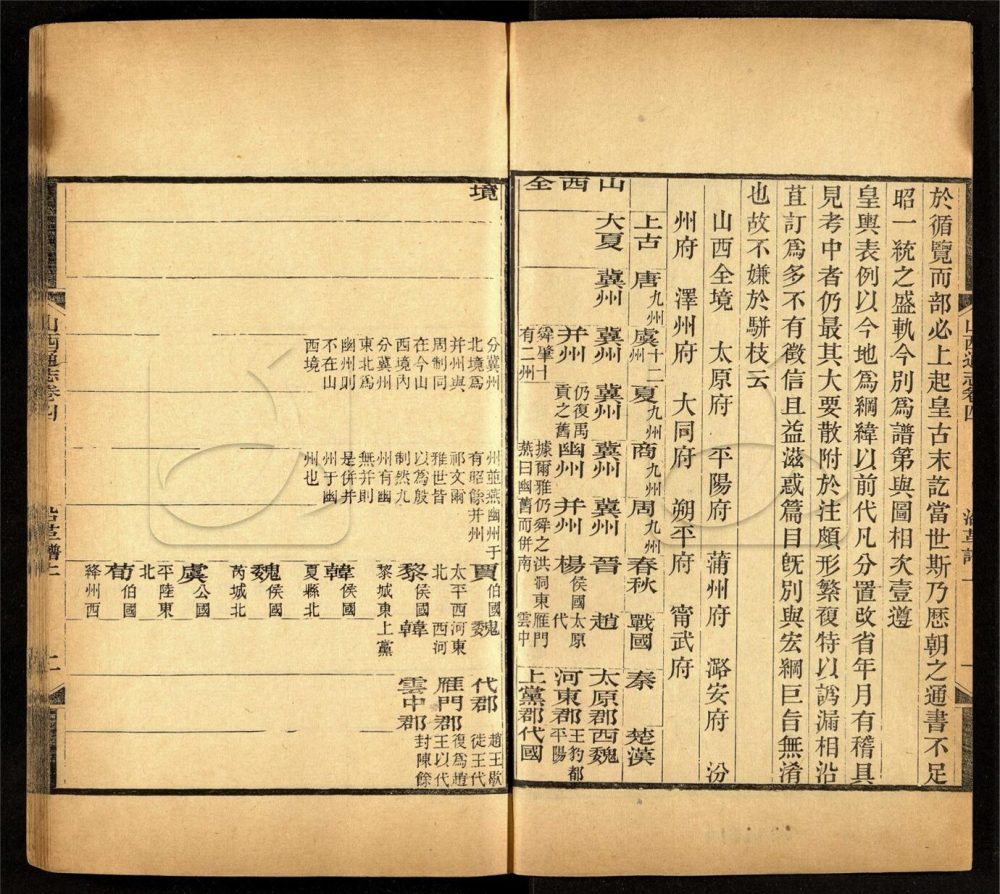 於循覽而部必上起皇古末訖當世斯乃歷朝之通書不足
昭一統之盛軌今別為譜第與圖相次壹遵
皇輿表例以今地為綱緯以前代凡分置改省年月有稽具
見考中者仍最其大要散附於注頗形繁復特以譌漏相沿
苴訂為多不有徵信且益滋惑篇目旣別與宏綱巨旨無淆
也故不嫌於駢枝云
山西全境 太原府 平陽府 蒲州府 潞安府 汾
州府 澤州府 大同府 朔平府 甯武府
山西全
上古 唐九州 虞十二州 夏九州 商九州 周九州 春秋 戰國 秦 楚漢
大夏 冀州 冀州 冀州 冀州 冀州 晉 趙 太原郡 西魏
并州 仍復禹 幽州 并州 楊侯國 太原 河東郡 王豹都
貢之舊 洪洞東 代 平陽
舜肇十 據爾雅仍舜之 南 雁門 上黨郡 代國
有二州 燕曰幽舊而併 雲中
山西通志卷四
沿革譜上
一
境
分冀州 州並燕幽州于 賈伯國 魏 代郡 趙王歇
北境為 有昭餘并州 太平西 河東 徙王代
并州與 祁文爾 北 西河 雁門郡 復為趙
周制同 雅世皆 黎侯國 韓 王以代
在今山 以為殷 黎城東 上黨 雲中郡 封陳餘
西境內 制然九
分冀州 州有幽
東北為 無并則
幽州則 是併并
不在山 州于幽
西境 州也
韓侯國
夏縣北
魏侯國
芮城北
虞公國
平陸東
北
荀伯國
絳州西
山西通志卷四
沿革譜上
二